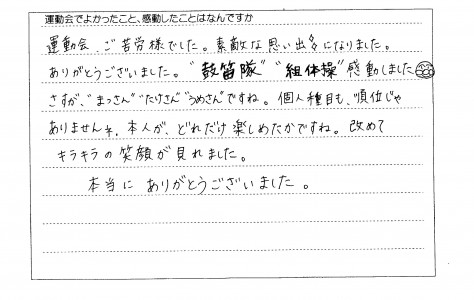 運動会でよかったこと、感動したことはなんですか
運動会、ご苦労様でした。素敵な思い出になりました。
ありがとうございました。"鼓笛隊" "組体操" 感動しました
さすが、"まっさん" "たけさん" "うめさん" ですね。個人種目も、順位じゃ
ありませんネ。本人が、どれだけ楽しめたかですね。改めて
キラキラの笑顔が見れました。
本当に ありがとうございました。